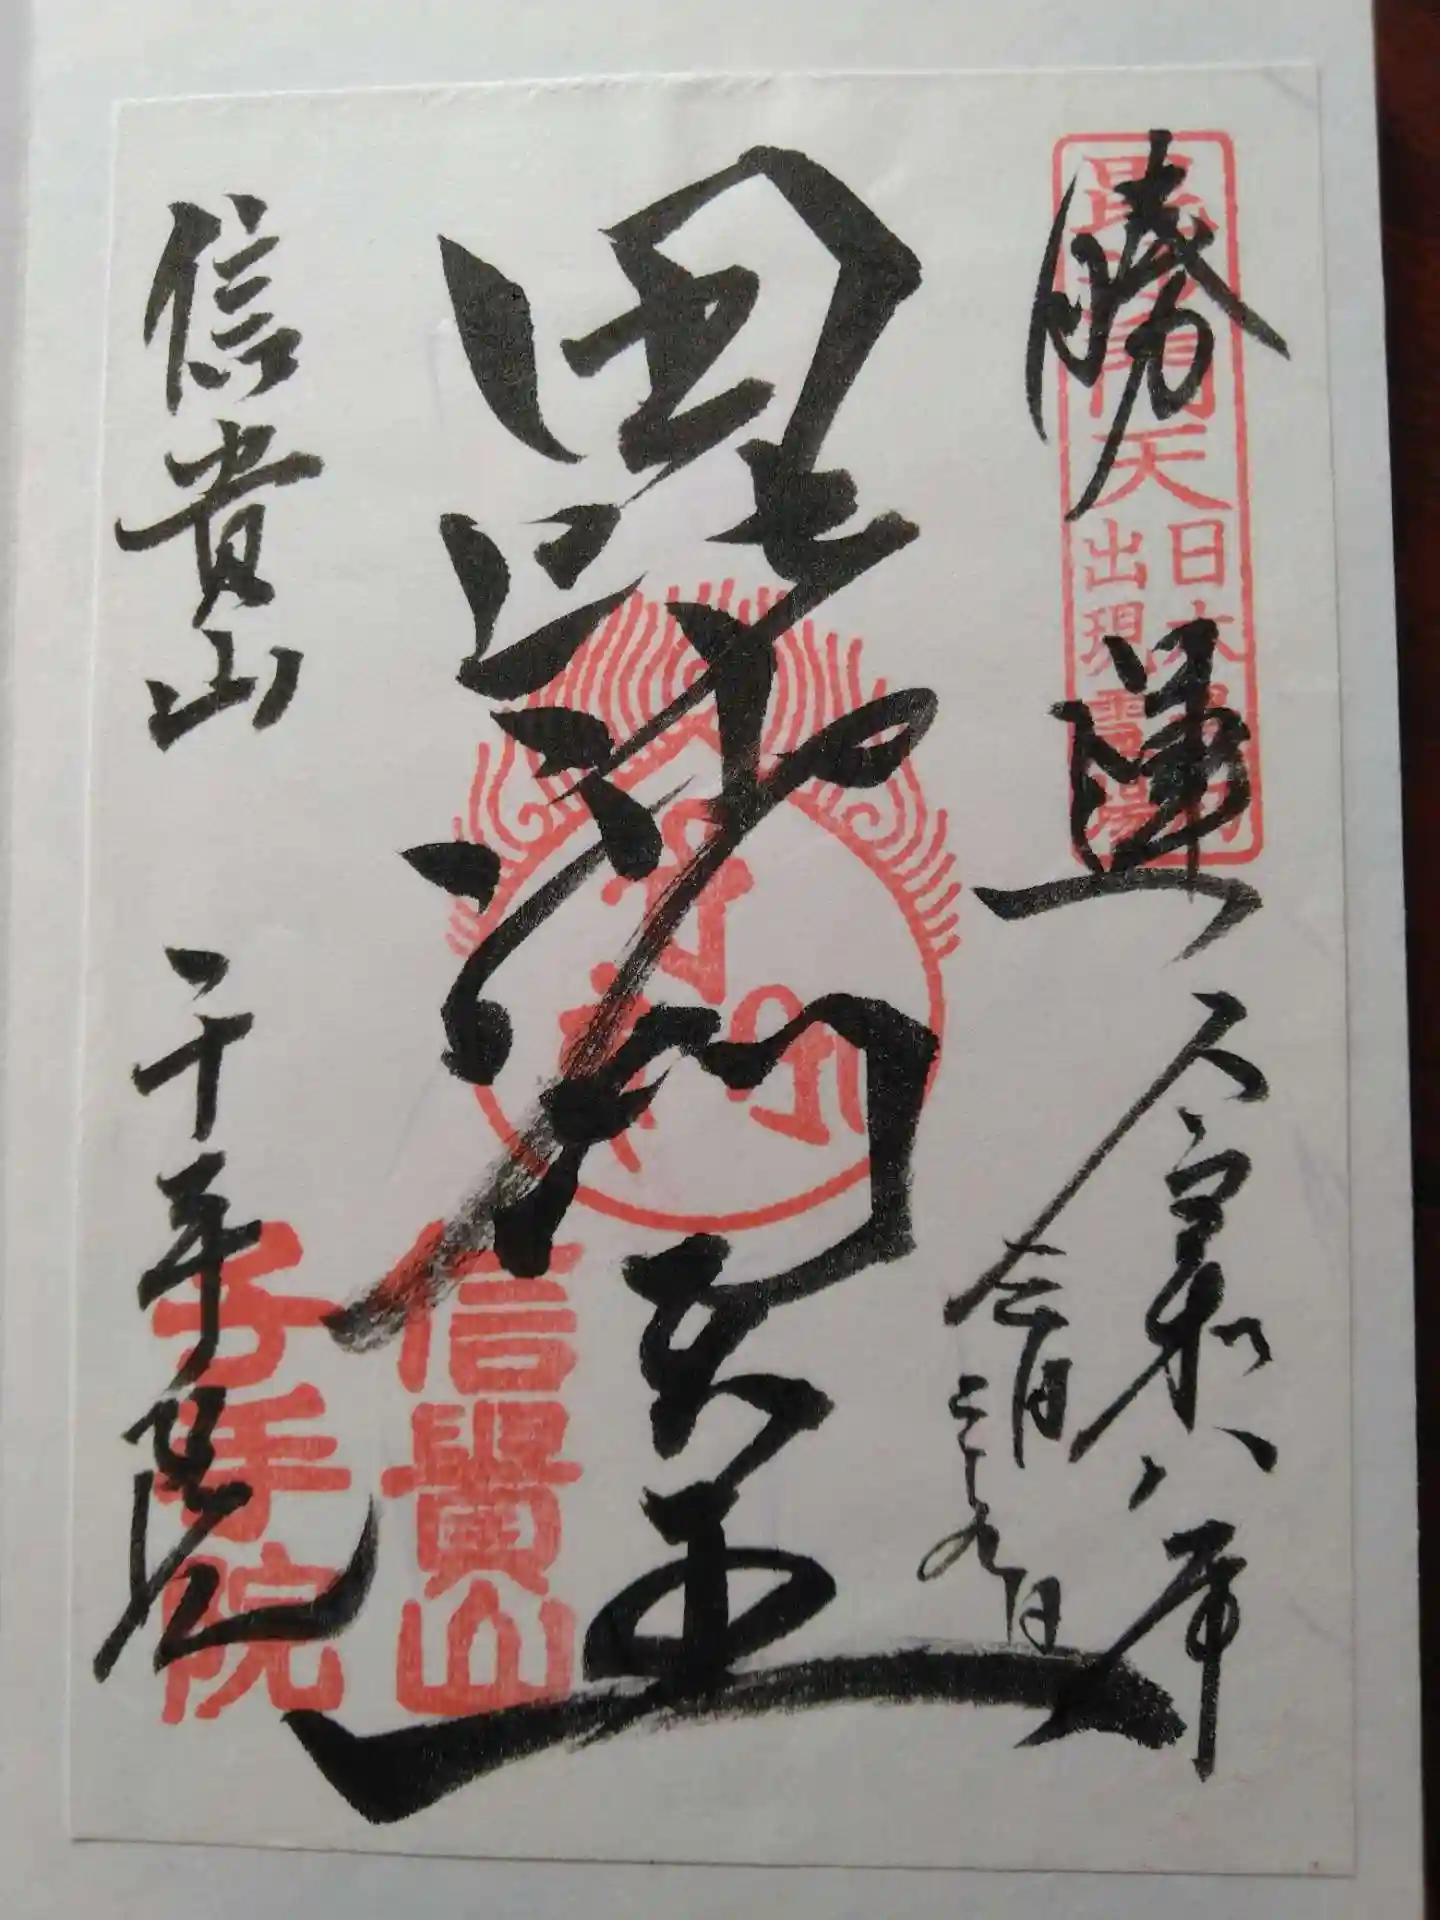 勝運
令和八年
三月二十九日
毘沙門天王
信貴山
千手院
毘沙門天
日本最初
出現霊場
信貴山
千手院